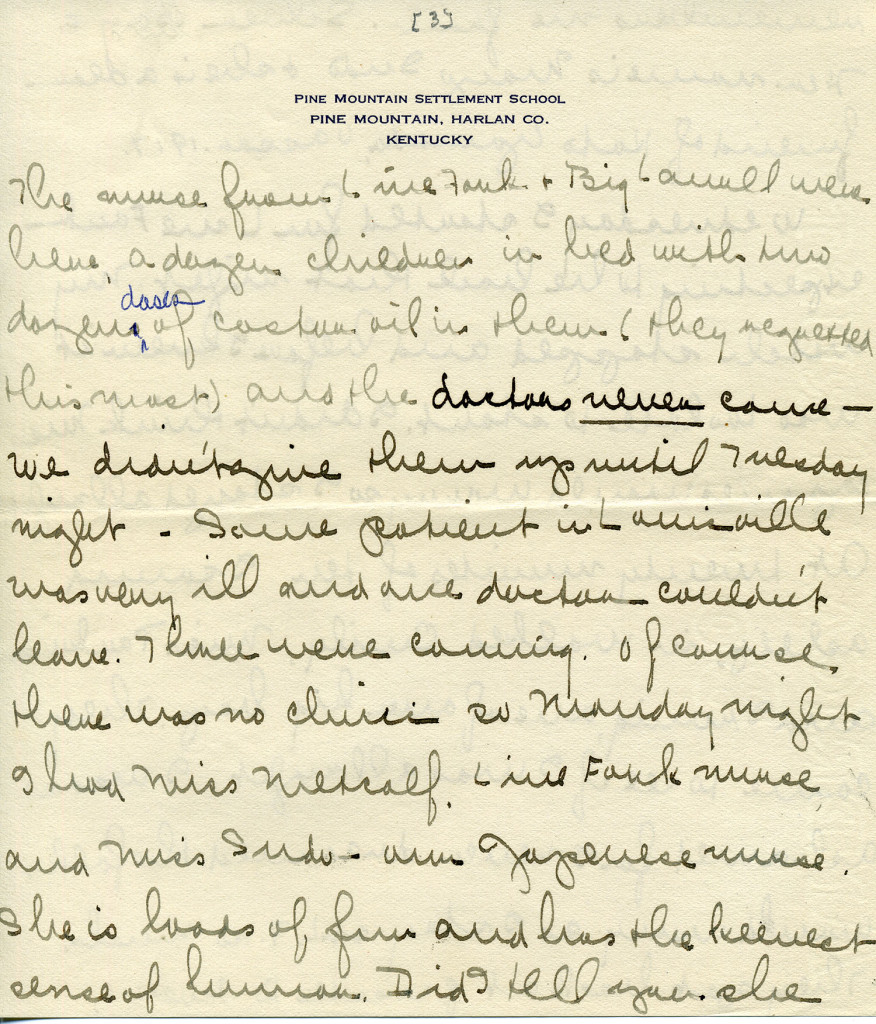 [3]
PINE MOUNTAIN SETTLEMENT SCHOOL
PINE MOUNTAIN, HARLAN CO.
KENTUCKY
The nurse from Line Fork & Big Laurell were
here, a dozen children in bed with two
doses
dozen of castor oil in them (they requested
this most) and the doctors never came —
we didn't give them up until Tuesday
night - Some patient in Louisville
was very ill and one doctor couldn't
leave. Three were coming. Of course,
there was no clinic so Monday night
I had Miss Metcalf, Line Fork nurse
and Miss Sudo - our Japenese nurse.
She is loads of fun and has the keenest
sense of humor. Did I tell you she